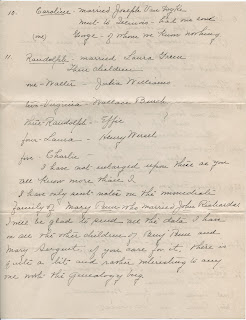 10. Caroline - married Joseph Van
went to - had one son
(me) George - of whom we know nothing
11. Randolph - married Laura Green
Their children
one - Walter - Julia Williams
two Virginia - Wallace
three Randolph - Effie
four - Laura - Henry
five - Charlie
I have not enlarged upon these as you
all know more than I.
I have only sent notes on the immediate
family of Mary who married John Richards
I will be glad to send all the data I have
on all the other children of and
Mary if you care for it. there is
quite a bit and rather interesting to any
one with the Genealogy bug